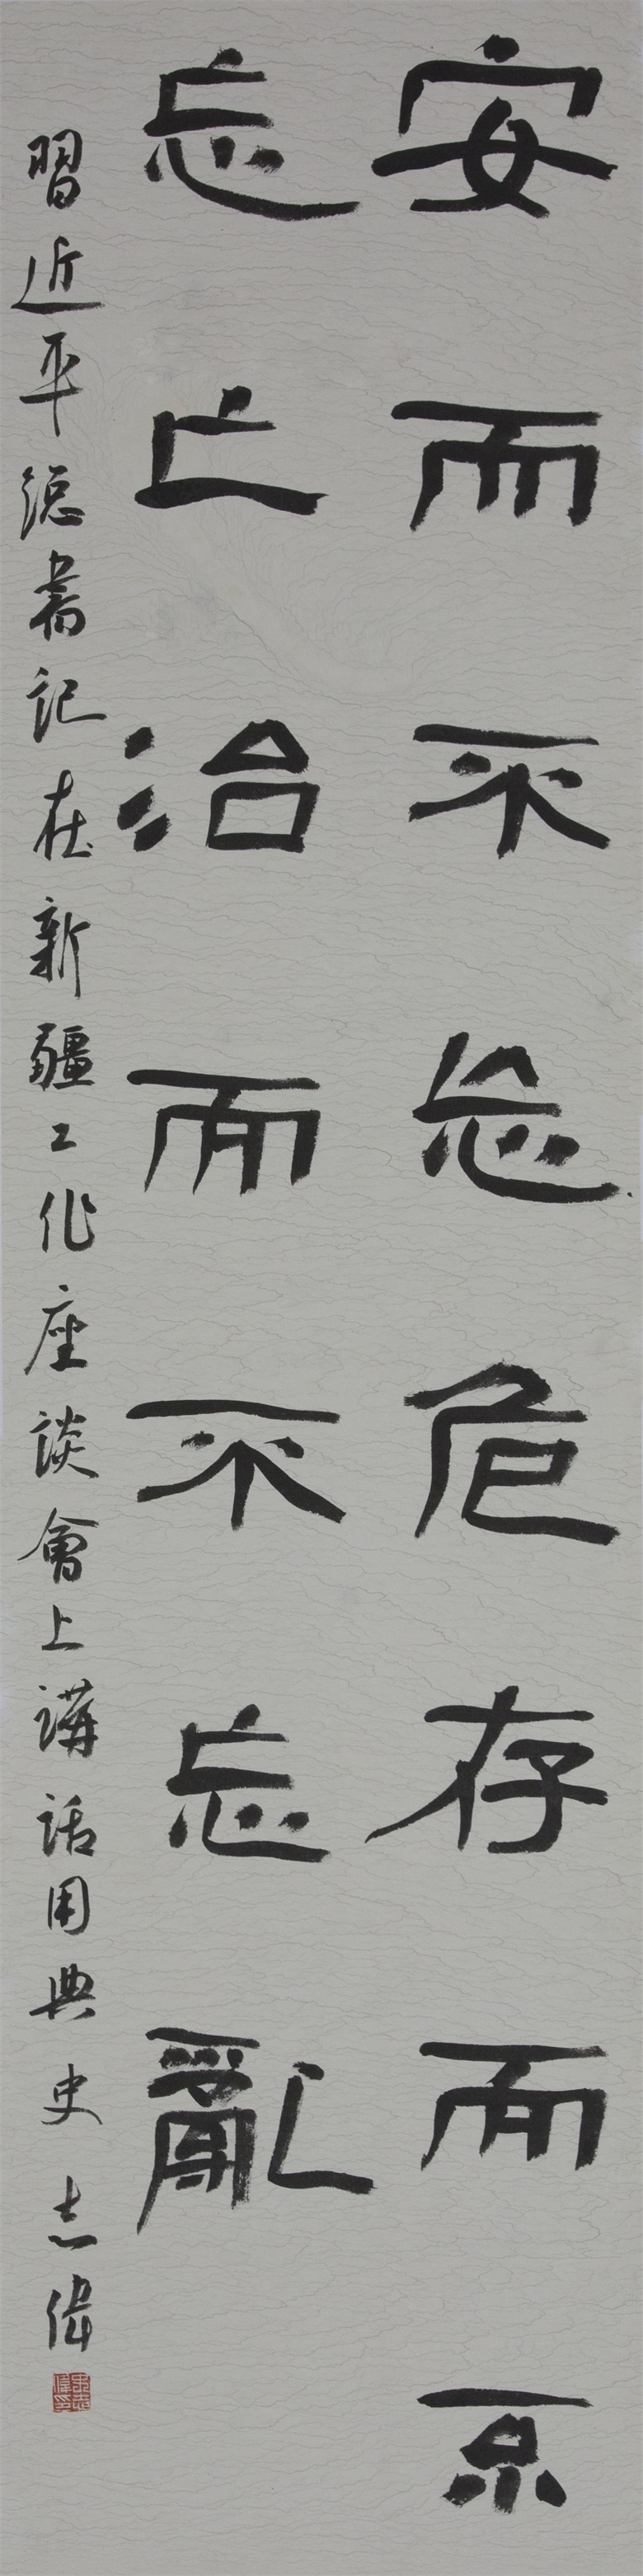 安而不忘危存而不
忘亡治而不忘亂
習近平總書記在新疆工作座談會上講話用典史志偉
史志偉印